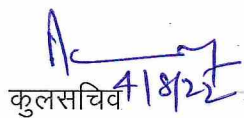 कुलसचिव 4/8/22